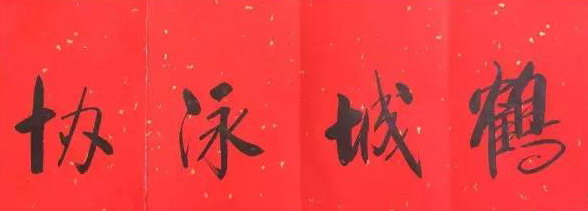 鹤城泳协